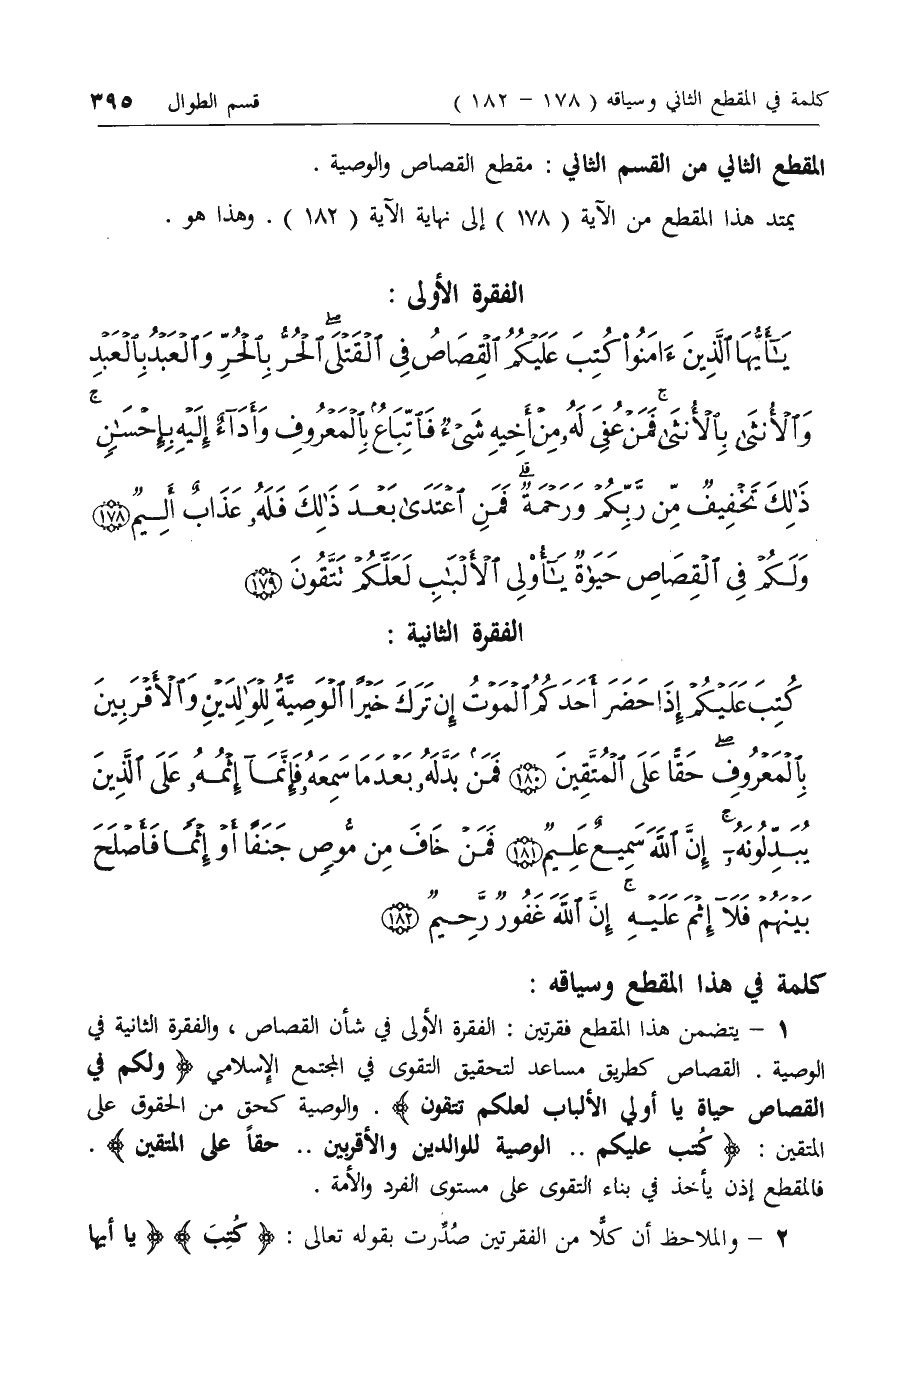 كلمة في المقطع الثاني وسياقه ( ١٧٨ – ١٨٢ ) قسم الطوال ٣٩٥
المقطع الثاني من القسم الثاني : مقطع القصاص والوصية .
يمتد هذا المقطع من الآية ( ١٧٨ ) إلى نهاية الآية ( ١٨٢ ) . وهذا هو .
الفقرة الأولى :
يَٰٓأَيُّهَا ٱلَّذِينَ ءَامَنُوا۟ كُتِبَ عَلَيْكُمُ ٱلْقِصَاصُ فِى ٱلْقَتْلَى ۖ ٱلْحُرُّ بِٱلْحُرِّ وَٱلْعَبْدُ بِٱلْعَبْدِ
وَٱلْأُنثَىٰ بِٱلْأُنثَىٰ ۚ فَمَنْ عُفِىَ لَهُۥ مِنْ أَخِيهِ شَىْءٌ فَٱتِّبَاعٌۢ بِٱلْمَعْرُوفِ وَأَدَآءٌ إِلَيْهِ بِإِحْسَٰنٍ ۗ
ذَٰلِكَ تَخْفِيفٌ مِّن رَّبِّكُمْ وَرَحْمَةٌ ۗ فَمَنِ ٱعْتَدَىٰ بَعْدَ ذَٰلِكَ فَلَهُۥ عَذَابٌ أَلِيمٌ ﴿١٧٨﴾
وَلَكُمْ فِى ٱلْقِصَاصِ حَيَوٰةٌ يَٰٓأُو۟لِى ٱلْأَلْبَٰبِ لَعَلَّكُمْ تَتَّقُونَ ﴿١٧٩﴾
الفقرة الثانية :
كُتِبَ عَلَيْكُمْ إِذَا حَضَرَ أَحَدَكُمُ ٱلْمَوْتُ إِن تَرَكَ خَيْرًا ٱلْوَصِيَّةُ لِلْوَٰلِدَيْنِ وَٱلْأَقْرَبِينَ
بِٱلْمَعْرُوفِ ۖ حَقًّا عَلَى ٱلْمُتَّقِينَ ﴿١٨٠﴾ فَمَنۢ بَدَّلَهُۥ بَعْدَمَا سَمِعَهُۥ فَإِنَّمَآ إِثْمُهُۥ عَلَى ٱلَّذِينَ
يُبَدِّلُونَهُۥٓ ۚ إِنَّ ٱللَّهَ سَمِيعٌ عَلِيمٌ ﴿١٨١﴾ فَمَنْ خَافَ مِن مُّوصٍ جَنَفًا أَوْ إِثْمًا فَأَصْلَحَ
بَيْنَهُمْ فَلَآ إِثْمَ عَلَيْهِ ۚ إِنَّ ٱللَّهَ غَفُورٌ رَّحِيمٌ ﴿١٨٢﴾
كلمة في هذا المقطع وسياقه :
١ – يتضمن هذا المقطع فقرتين : الفقرة الأولى في شأن القصاص ، والفقرة الثانية في
الوصية . القصاص كطريق مساعد لتحقيق التقوى في المجتمع الإسلامي ﴿ ولكم في
القصاص حياة يا أولي الألباب لعلكم تتقون ﴾ . والوصية كحق من الحقوق على
المتقين : ﴿ كُتب عليكم .. الوصية للوالدين والأقربين .. حقاً على المتقين ﴾ .
فالمقطع إذن يأخذ في بناء التقوى على مستوى الفرد والأمة .
٢ – والملاحظ أن كلًّا من الفقرتين صُدِّرت بقوله تعالى : ﴿ كُتِبَ ﴾ ﴿ يا أيها